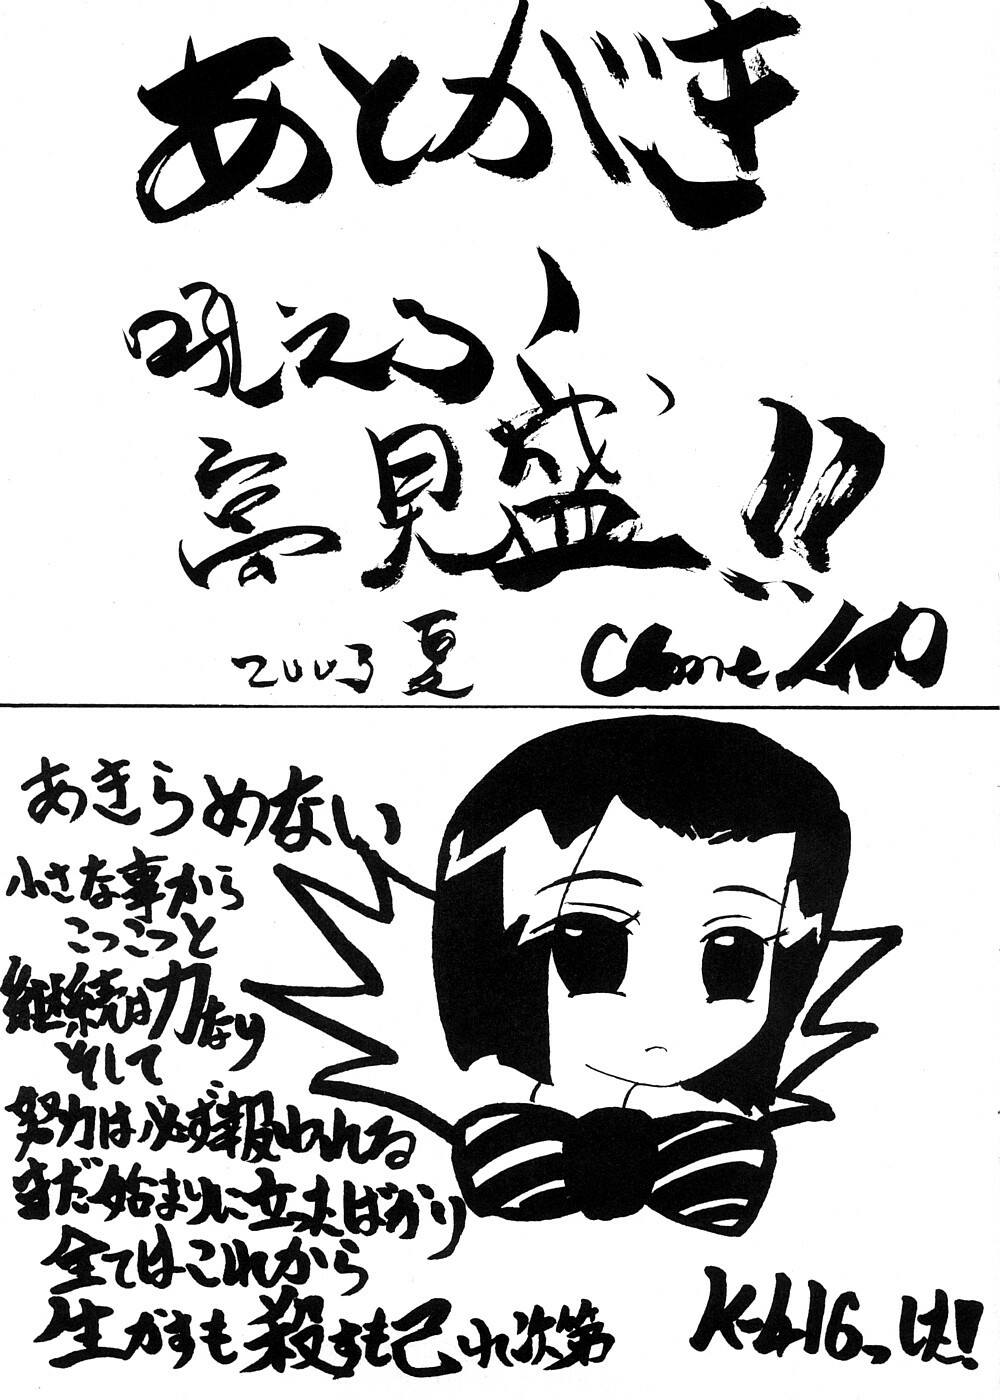 あとがき
吼える
夢見盛!!
2003 夏
あきらめない
小さな事から
こつこつと
継続は力なり
そして
努力は必ず報われる
まだ始まりに立ったばかり
全てはこれから
生かすも殺すも己れ次第
K-416っす!